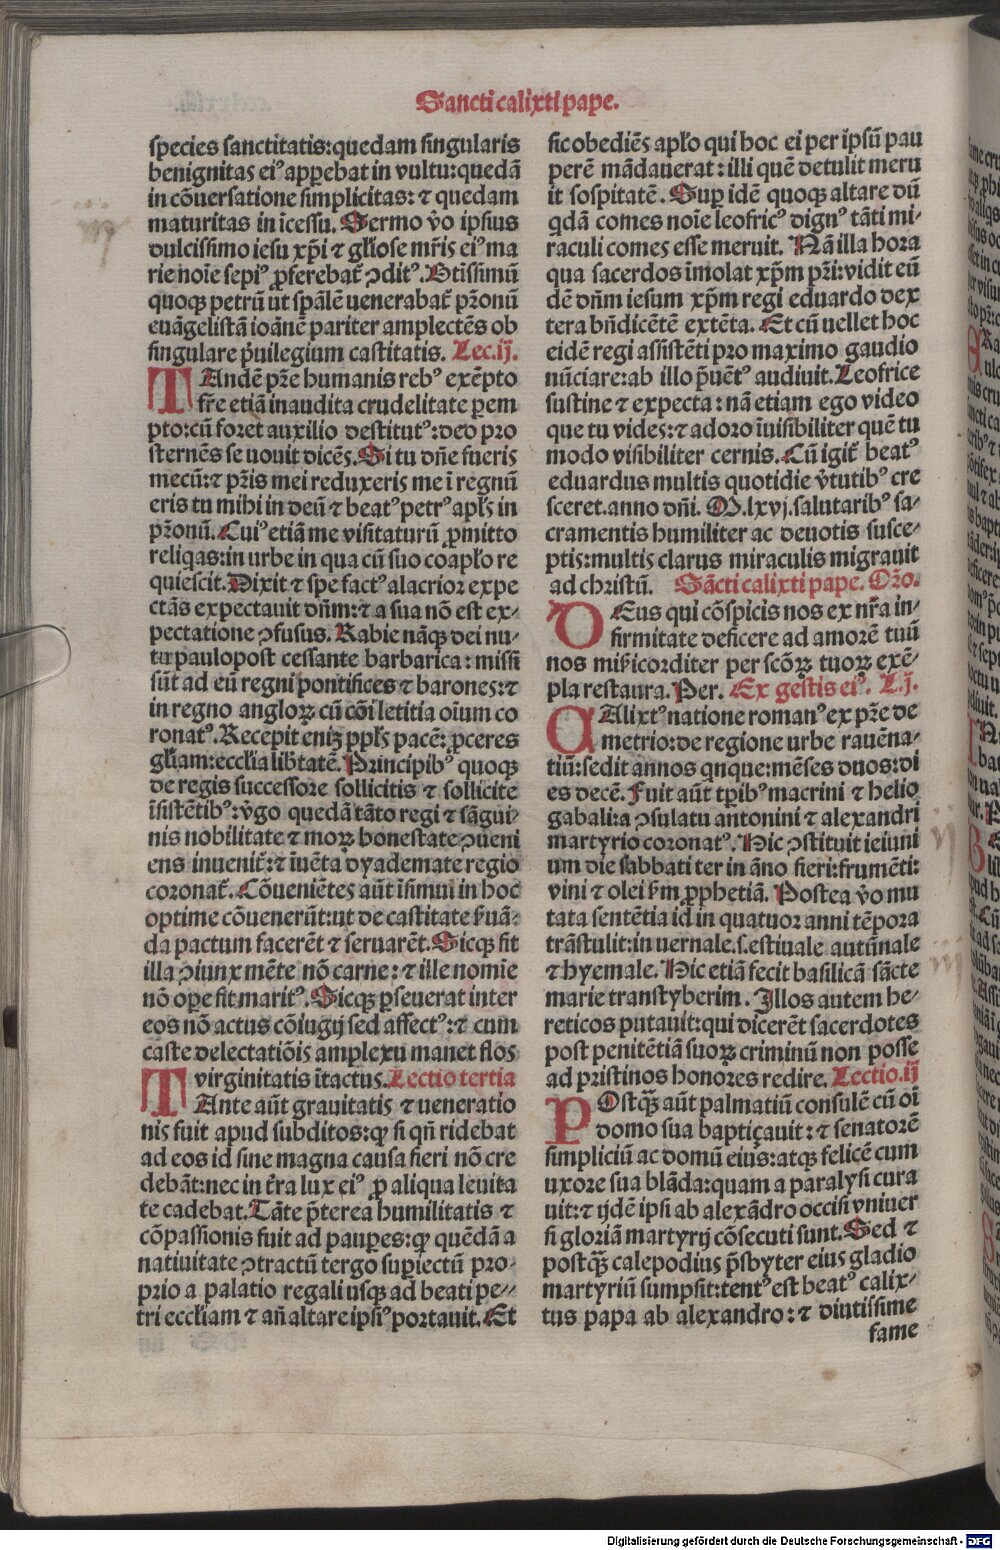 Sancti calixti pape.
species sanctitatis: quedam singularis
benignitas eiꝰ apꝑebat in vultu: quedã
in cõuersatione simplicitas: ⁊ quedam
maturitas in ĩcessu. Sermo v̾o ipsius
dulcissimo iesu xp̃i ⁊ gl̃iose mr̃is eiꝰ ma
rie noĩe sepiꝰ ꝓferebat̃ ↄditꝰ. Btĩssimũ
quoqꝫ petrũ ut sp̃alẽ uenerabat̃ pr̃onũ
euãgelistã ioãnẽ pariter amplectẽs ob
singulare p̃uilegium castitatis. Lec.ij.
TAndẽ pr̃e humanis rebꝰ exẽpto
fr̃e etiã inaudita crudelitate ꝑem
pto: cũ foret auxilio destitutꝰ: deo pro
sternẽs se uouit dicẽs. Si tu dñe fueris
mecũ: ⁊ pr̃is mei reduxeris me ĩ regnũ
eris tu mihi in deũ ⁊ beatꝰ petrꝰ apl̃s in
pr̃onũ. Cuiꝰ etiã me visitaturũ ꝓmitto
reliqas: in urbe in qua cũ suo coapl̃o re
quiescit. Dixit ⁊ spe factꝰ alacrior expe
ctãs expectauit dñm: ⁊ a sua nõ est ex-
pectatione ↄfusus. Rabie nãqꝫ dei nu-
tu paulopost cessante barbarica: missi
sũt ad eũ regni pontifices ⁊ barones: ⁊
in regno angloꝝ cũ cõi letitia oĩum co
ronatꝰ. Recepit eniꝫ ppl̃s pacẽ: ꝓceres
gl̃iam: eccl̃ia lib̃tatẽ. Principibꝰ quoqꝫ
de regis successore sollicitis ⁊ sollicite
ĩsistẽtibꝰ: v̾go quedã tãto regi ⁊ sãgui-
nis nobilitate ⁊ moꝝ honestate ↄueni
ens inuenit̃: ⁊ ĩuẽta dyademate regio
coronat̃. Cõueniẽtes aũt ĩsimul in hoc
optime cõuenerũt: ut de castitate ẜuã-
da pactum facerẽt ⁊ seruarẽt. Sicqꝫ fit
illa ↄiunx mẽte nõ carne: ⁊ ille nomĩe
nõ oꝑe fit maritꝰ. Sicqꝫ ꝑseuerat inter
eos nõ actus cõiugij sed affectꝰ: ⁊ cum
caste delectatiõis amplexu manet flos
virginitatis ĩtactus. Lectio tertia
TAnte aũt grauitatis ⁊ ueneratio
nis fuit apud subditos: qꝙ si qñ ridebat
ad eos id sine magna causa fieri nõ cre
debãt: nec in t̃ra lux eiꝰ ꝓ aliqua leuita
te cadebat. Tãte p̃terea humilitatis ⁊
cõpassionis fuit ad pauꝑes: qꝙ quẽdã a
natiuitate ↄtractũ tergo suꝑiectũ pro-
prio a palatio regali usqꝫ ad beati pe-
tri eccl̃iam ⁊ añ altare ipsiꝰ portauit. Et
fic obediẽs apl̃o qui hoc ei per ipsũ pau
perẽ mãdauerat: illi quẽ detulit meru
it sospitatẽ. Suꝑ idẽ quoqꝫ altare dũ
qdã comes noĩe leofricꝰ dignꝰ tãti mi-
raculi comes esse meruit. Nã illa hora
qua sacerdos ĩmolat xp̃m pr̃i: vidit eũ
dẽ dñm iesum xp̃m regi eduardo dex
tera bñdicẽtẽ extẽta. Et cũ uellet hoc
eidẽ regi assistẽti pro maximo gaudio
nũciare: ab illo p̃uẽtꝰ audiuit. Leofrice
sustine ⁊ expecta: nã etiam ego video
que tu vides: ⁊ adoro ĩuisibiliter quẽ tu
modo visibiliter cernis. Cũ igit̃ beatꝰ
eduardus multis quotidie v̾tutibꝰ cre
sceret. anno dñi. M.lxvj. salutaribꝰ sa-
cramentis humiliter ac deuotis susce-
ptis: multis clarus miraculis migrauit
ad christũ. Sãcti calixti pape. Or̃o.
DEus qui cõspicis nos ex nr̃a in-
firmitate deficere ad amorẽ tuũ
nos mis̃icorditer per scõꝝ tuoꝝ exẽ-
pla restaura. Per. Ex gestis eiꝰ. L.j.
CAlixtꝰ natione romanꝰ ex pr̃e de
metrio: de regione urbe rauẽna-
tiũ: sedit annos qnque: mẽses duos: di
es decẽ. Fuit aũt tꝑibꝰ macrini ⁊ helio
gabali: a ↄsulatu antonini ⁊ alexandri
martyrio coronatꝰ. Hic ↄstituit ieiuni
um die sabbati ter in ãno fieri: frumẽti:
vini ⁊ olei ẜm ꝓphetiã. Postea v̾o mu
tata sentẽtia id in quatuor anni tẽpora
trãstulit: in uernale. s. estiuale autũnale
⁊ hyemale. Hic etiã fecit basilicã sãcte
marie transtyberim. Illos autem he-
reticos putauit: qui dicerẽt sacerdotes
post penitẽtiã suoꝝ criminũ non posse
ad pristinos honores redire. Lectio.ij
POstqꝫ̃ aũt palmatiũ consulẽ cũ oĩ
domo sua baptiçauit: ⁊ senatorẽ
simpliciũ ac domũ eius: atqꝫ felicẽ cum
uxore sua blãda: quam a paralysi cura
uit: ⁊ ijdẽ ipsi ab alexãdro occisi vniuer
si gloriã martyrij cõsecuti sunt. Sed ⁊
postqꝫ̃ calepodius p̃sbyter eius gladio
martyriũ sumpsit: tentꝰ est beatꝰ calix-
tus papa ab alexandro: ⁊ diutissime
fame
Digitalisierung gefördert durch die Deutsche Forschungsgemeinschaft - DFG